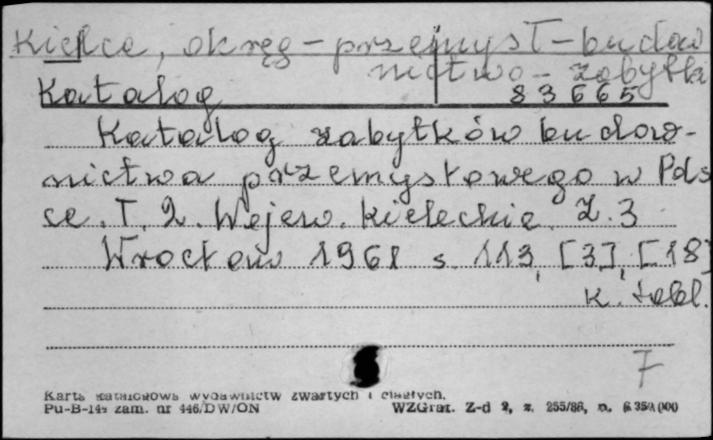 Kielce, okręg - przemysł - budow
nictwo - zabytki
Katalog 83665
Katalog zabytków budow-
nictwa przemysłowego w Pols
ce. T. 2. Wojew. kieleckie. Z. 3
Wrocław 1968 s. 113, [3], [18]
k. tabl.
7
Karta katalogowa wydawnictw zwartych i ciągłych.
Pu-B-14a zam. nr 446/DW/ON WZGraf. Z-d 2, z. 255/86, n.